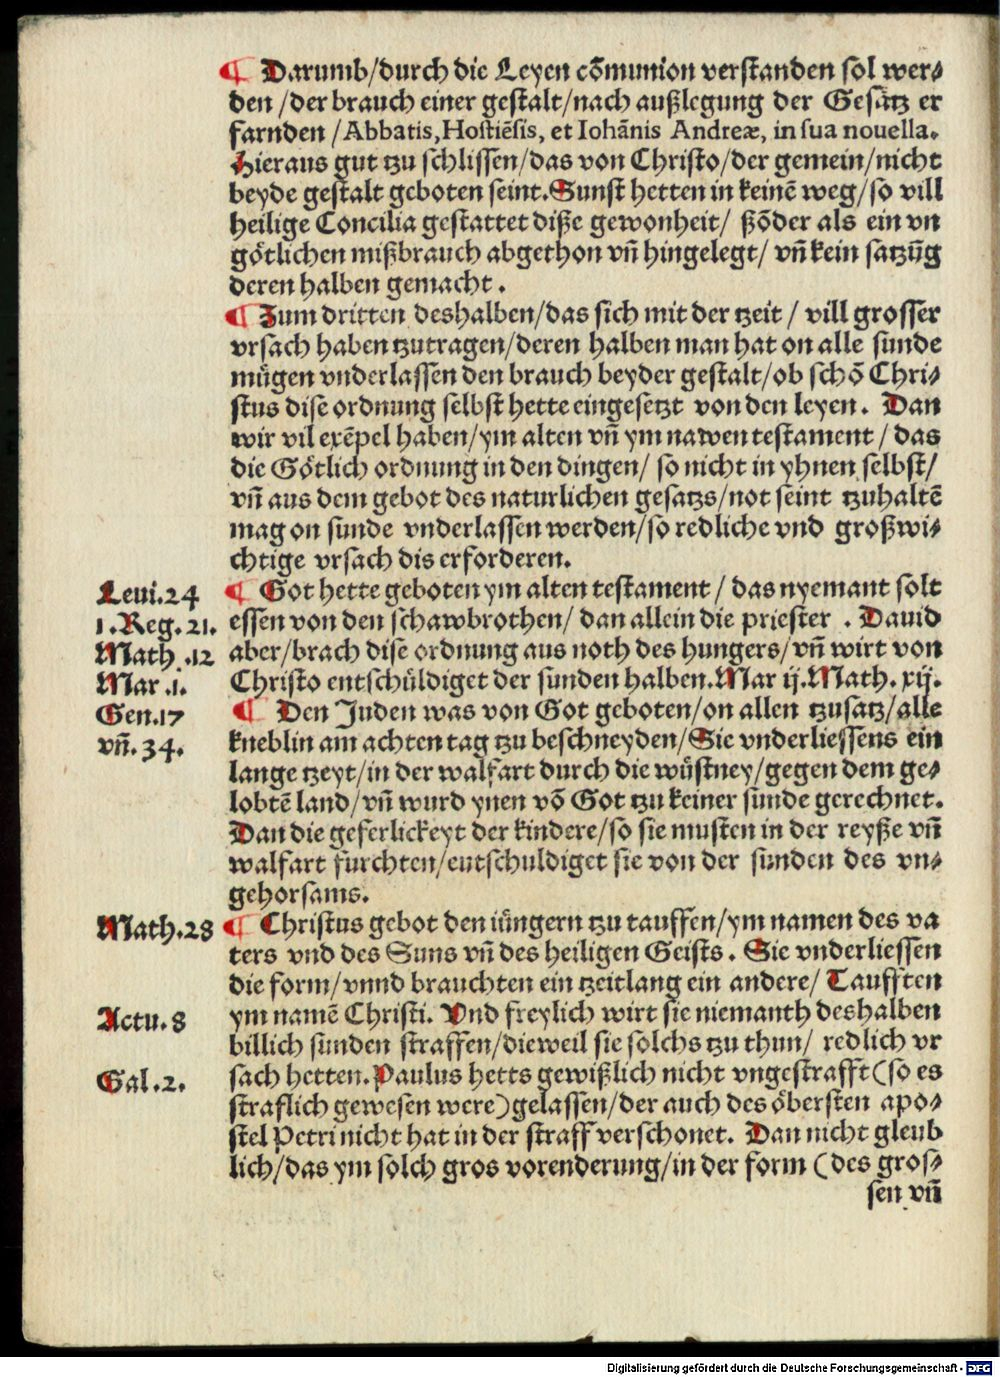 ¶ Darumb/durch die Leyen cõmunion verstanden sol wer⸗
den /der brauch einer gestalt/nach außlegung der Gesätz er
farnden /Abbatis, Hostiẽsis, et Iohãnis Andreæ, in sua nouella.
Hieraus gut tzu schlissen/das von Christo/der gemein/nicht
beyde gestalt geboten seint. Sunst hetten in keinẽ weg/so vill
heilige Concilia gestattet diße gewonheit/ ßõder als ein vn
götlichen mißbrauch abgethon vñ hingelegt/ vñ kein satzũg
deren halben gemacht.
¶ Zum dritten deshalben/das sich mit der tzeit / vill grosser
vrsach haben tzutragen/deren halben man hat on alle sunde
mügen vnderlassen den brauch beyder gestalt/ob schõ Chri⸗
stus dise ordnung selbst hette eingesetzt von den leyen. Dan
wir vil exẽpel haben/ym alten vñ ym nawen testament / das
die Götlich ordnung in den dingen/ so nicht in yhnen selbst/
vñ aus dem gebot des naturlichen gesatzs/not seint tzuhaltẽ
mag on sunde vnderlassen werden/so redliche vnd großwi⸗
chtige vrsach dis erforderen.
Leui.24
1.Reg.21.
Math .12
Mar .1.
Gen.17
vñ. 34.
¶ Got hette geboten ym alten testament / das nyemant solt
essen von den schawbrothen/ dan allein die priester . Dauid
aber/brach dise ordnung aus noth des hungers/vñ wirt von
Christo entschüldiget der sunden halben. Mar ij. Math. xij.
¶ Den Juden was von Got geboten/on allen tzusatz/alle
kneblin am achten tag tzu beschneyden/Sie vnderliessens ein
lange tzeyt/in der walfart durch die wüstney/gegen dem ge⸗
lobtẽ land/vñ wurd ynen võ Got tzu keiner sunde gerechnet.
Dan die geferlickeyt der kindere/so sie musten in der reyße vñ
walfart furchten/entschuldiget sie von der sunden des vn⸗
gehorsams.
Math.28
¶ Christus gebot den iüngern tzu tauffen/ym namen des va
ters vnd des Suns vñ des heiligen Geists. Sie vnderliessen
die form/vnnd brauchten ein tzeitlang ein andere/ Taufften
Actu. 8
ym namẽ Christi. Vnd freylich wirt sie niemanth deshalben
billich sunden straffen/dieweil sie solchs tzu thun/ redlich vr
Gal .2.
sach hetten. Paulus hetts gewißlich nicht vngestrafft (so es
straflich gewesen were) gelassen/der auch des öbersten apo⸗
stel Petri nicht hat in der straff verschonet. Dan nicht gleub
lich/das ym solch gros vorenderung/in der form (des gros⸗
sen vñ
Digitalisierung gefördert durch die Deutsche Forschungsgemeinschaft - DFG